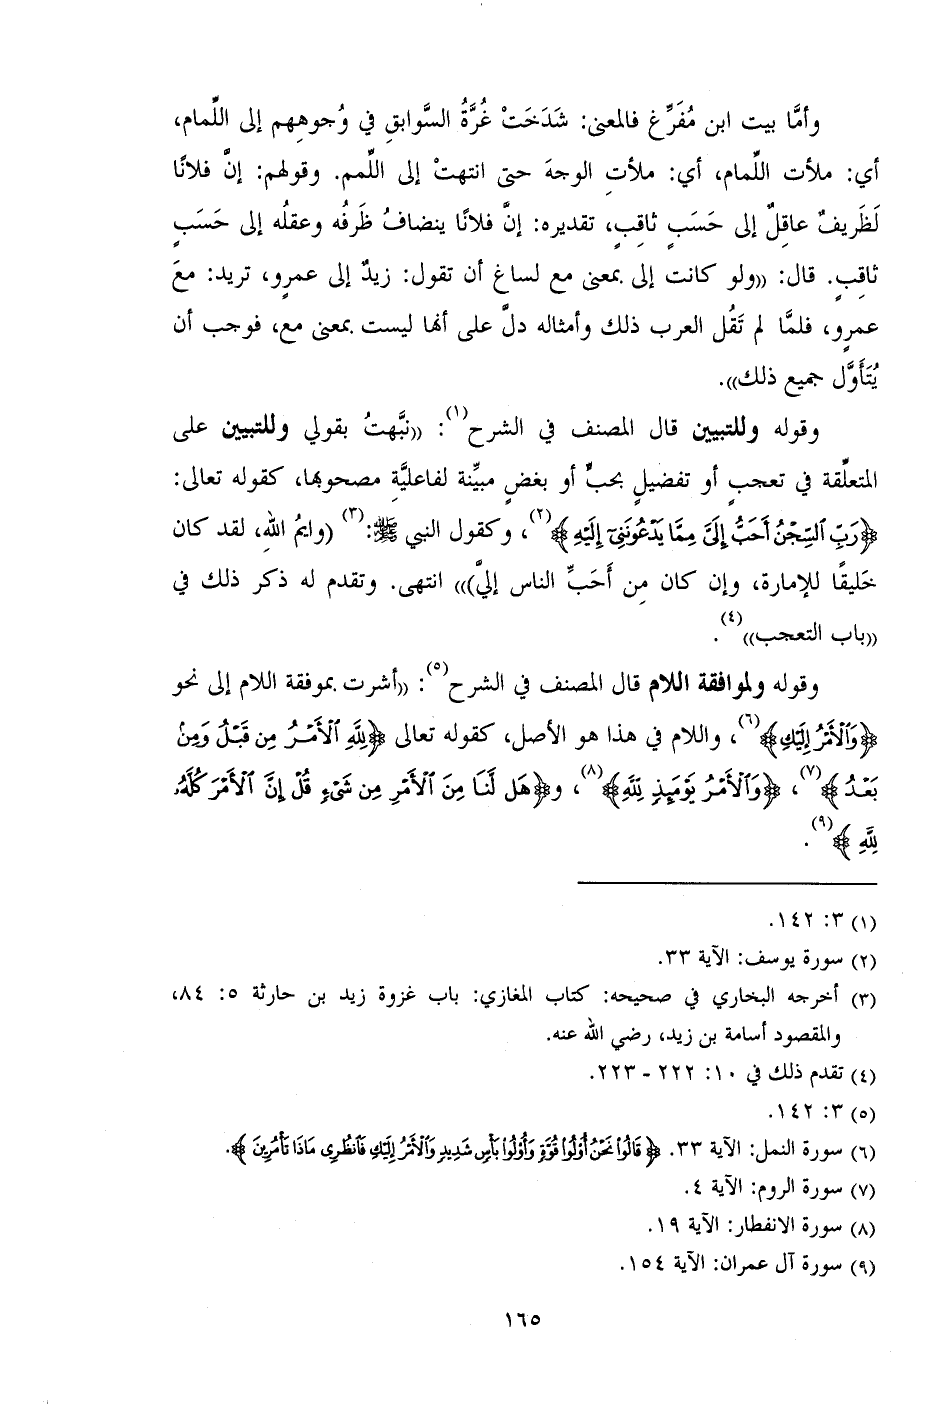 وأمَّا بيت ابن مُفَرِّغ فالمعنى: شَدَخَتْ غُرَّةُ السَّوابقِ في وُجوهِهم إلى اللِّمام،
أي: ملأت اللِّمام، أي: ملأتِ الوجهَ حتى انتهتْ إلى اللِّمم. وقولهم: إنَّ فلانًا
لَظَريفٌ عاقِلٌ إلى حَسَبٍ ثاقِبٍ، تقديره: إنَّ فلانًا ينضافُ ظَرفُه وعقلُه إلى حَسَبٍ
ثاقِبٍ. قال: ((ولو كانت إلى بمعنى مع لساغ أن تقول: زيدٌ إلى عمرٍو، تريد: معَ
عمرٍو، فلمَّا لم تَقُل العرب ذلك وأمثاله دلَّ على أنها ليست بمعنى مع، فوجب أن
يُتَأَوَّل جميع ذلك)).
وقوله وللتبيين قال المصنف في الشرح(١): ((نبَّهتُ بقولي وللتبيين على
المتعلِّقة في تعجبٍ أو تفضيلٍ بحبٍّ أو بغضٍ مبيِّنة لفاعليَّةِ مصحوبها، كقوله تعالى:
﴿رَبِّ ٱلسِّجْنُ أَحَبُّ إِلَىَّ مِمَّا يَدْعُونَنِىٓ إِلَيْهِ﴾(٢)، وكقول النبي ﷺ:(٣) (وايمُ اللهِ، لقد كان
خَليقًا للإمارة، وإن كان مِن أَحَبِّ الناس إليَّ))) انتهى. وتقدم له ذكر ذلك في
((باب التعجب))(٤).
وقوله ولموافقة اللام قال المصنف في الشرح(٥): ((أشرت بموفقة اللام إلى نحو
﴿وَٱلْأَمْرُ إِلَيْكِ﴾(٦)، واللام في هذا هو الأصل، كقوله تعالى ﴿لِلَّهِ ٱلْأَمْرُ مِن قَبْلُ وَمِنۢ
بَعْدُ﴾(٧)، ﴿وَٱلْأَمْرُ يَوْمَئِذٍ لِّلَّهِ﴾(٨)، و﴿هَل لَّنَا مِنَ ٱلْأَمْرِ مِن شَىْءٍ قُلْ إِنَّ ٱلْأَمْرَ كُلَّهُۥ
لِلَّهِ﴾(٩).
(١) ٣: ١٤٢.
(٢) سورة يوسف: الآية ٣٣.
(٣) أخرجه البخاري في صحيحه: كتاب المغازي: باب غزوة زيد بن حارثة ٥: ٨٤،
والمقصود أسامة بن زيد، رضي الله عنه.
(٤) تقدم ذلك في ١٠: ٢٢٢ - ٢٢٣.
(٥) ٣: ١٤٢.
(٦) سورة النمل: الآية ٣٣. ﴿قَالُوا۟ نَحْنُ أُو۟لُوا۟ قُوَّةٍ وَأُو۟لُوا۟ بَأْسٍ شَدِيدٍ وَٱلْأَمْرُ إِلَيْكِ فَٱنظُرِى مَاذَا تَأْمُرِينَ﴾.
(٧) سورة الروم: الآية ٤.
(٨) سورة الانفطار: الآية ١٩.
(٩) سورة آل عمران: الآية ١٥٤.
١٦٥